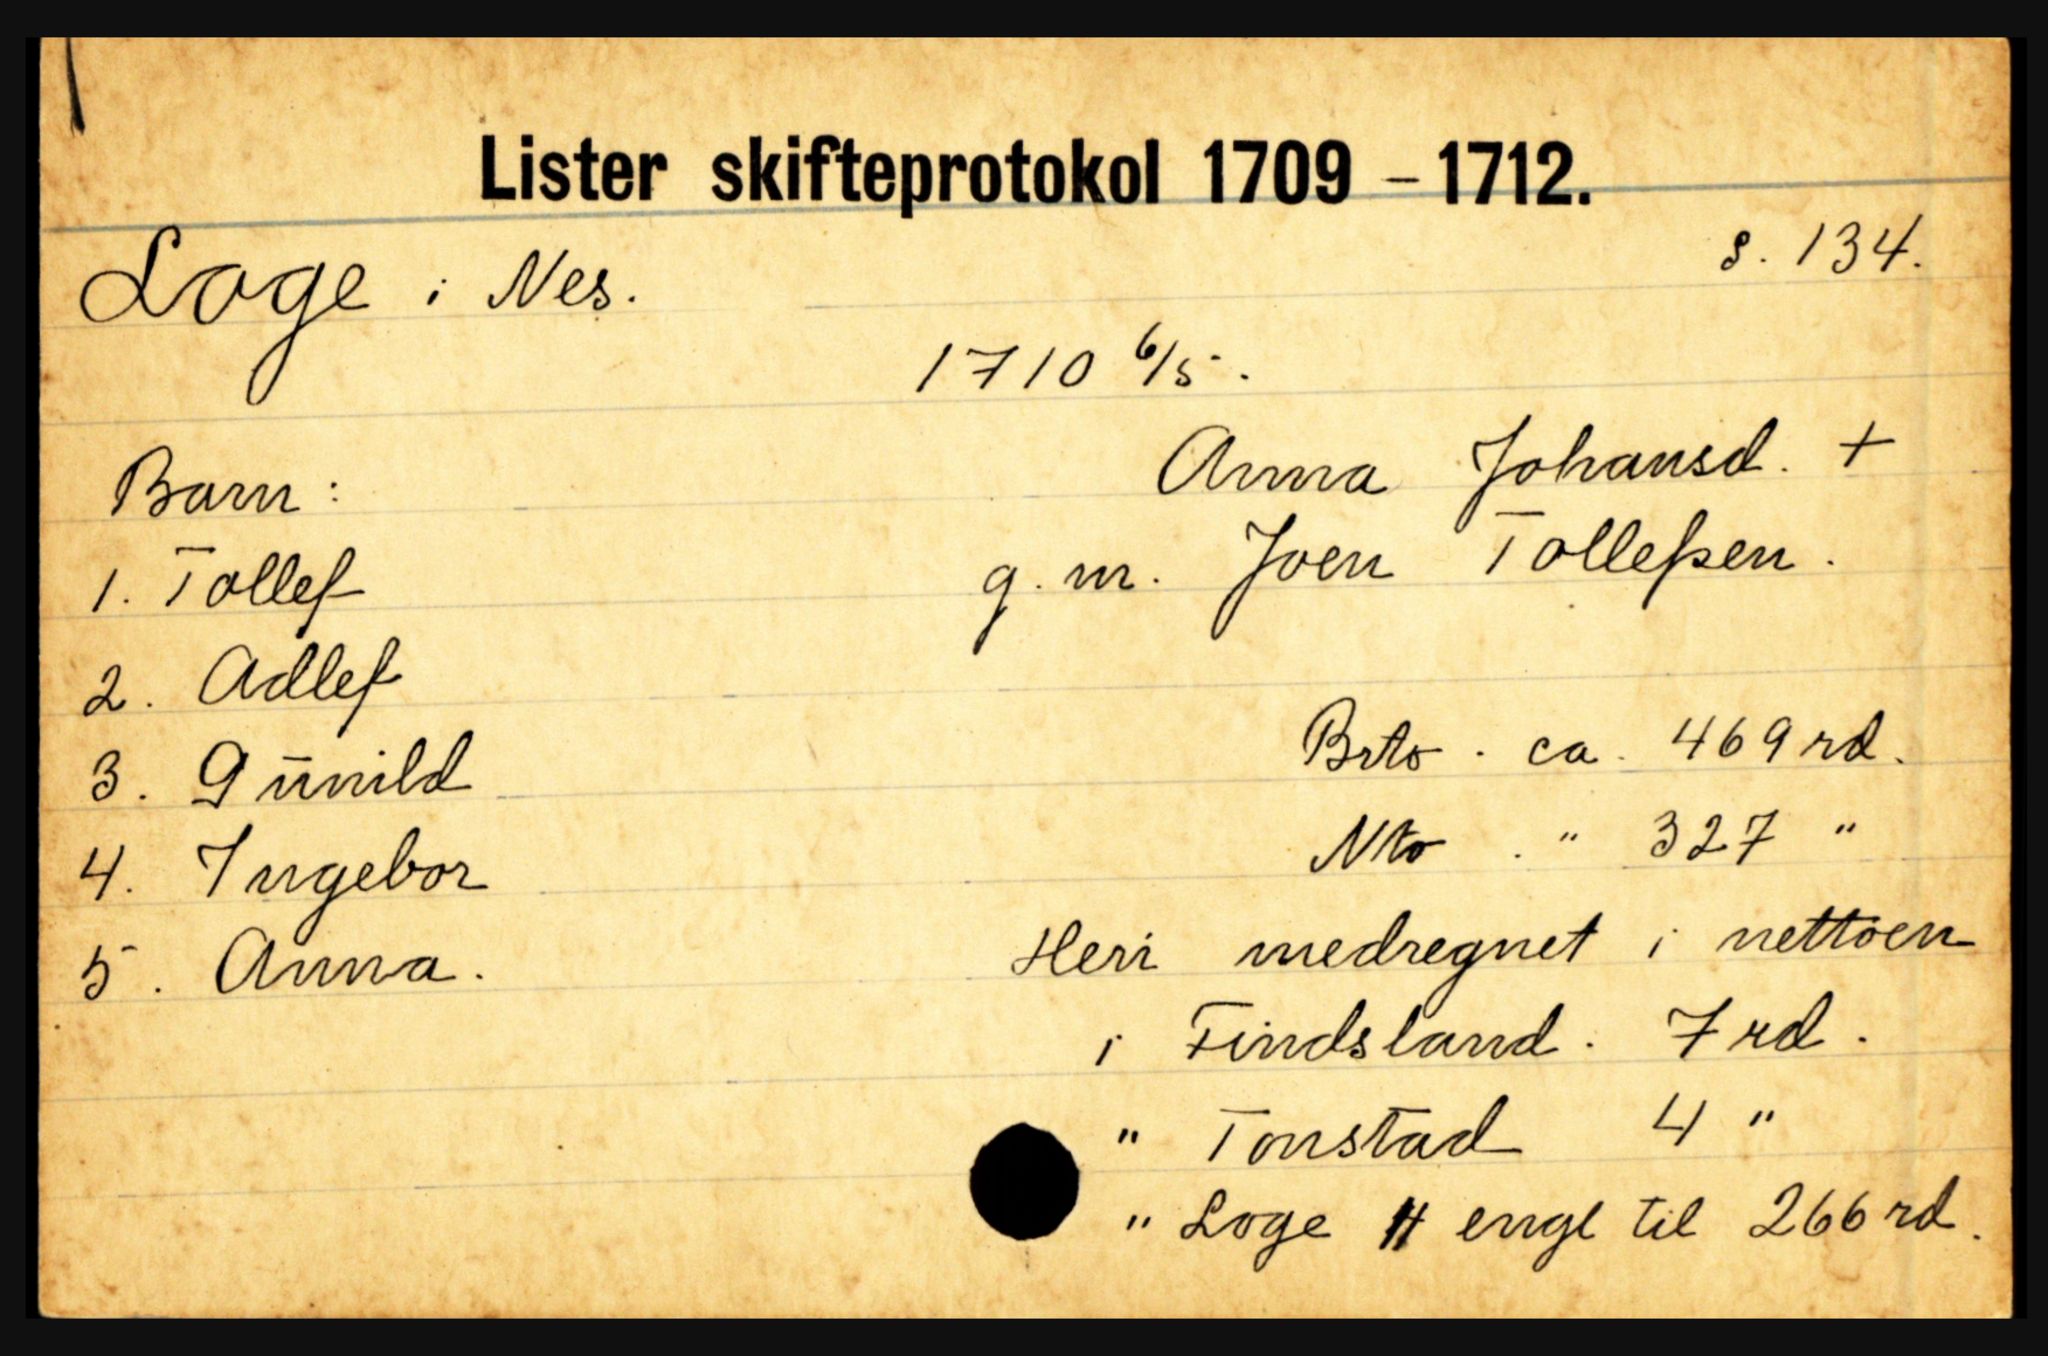 Lister skifteprotokol 1709 - 1712.
Loge i Nes.
s. 134.
1710 6/5.
Barn:
1. Tollef
2. Adlef
3. Günild
4. Ingebor
5. Anna.
Anna Johansd. +
g. m. Joen Tolleßen.
Brto. ca. 469 rd.
Nto. " 327 "
Heri medregnet i nettoen
i Findsland. 7 rd.
" Tonstad 4 "
" Loge engl til 266 rd.